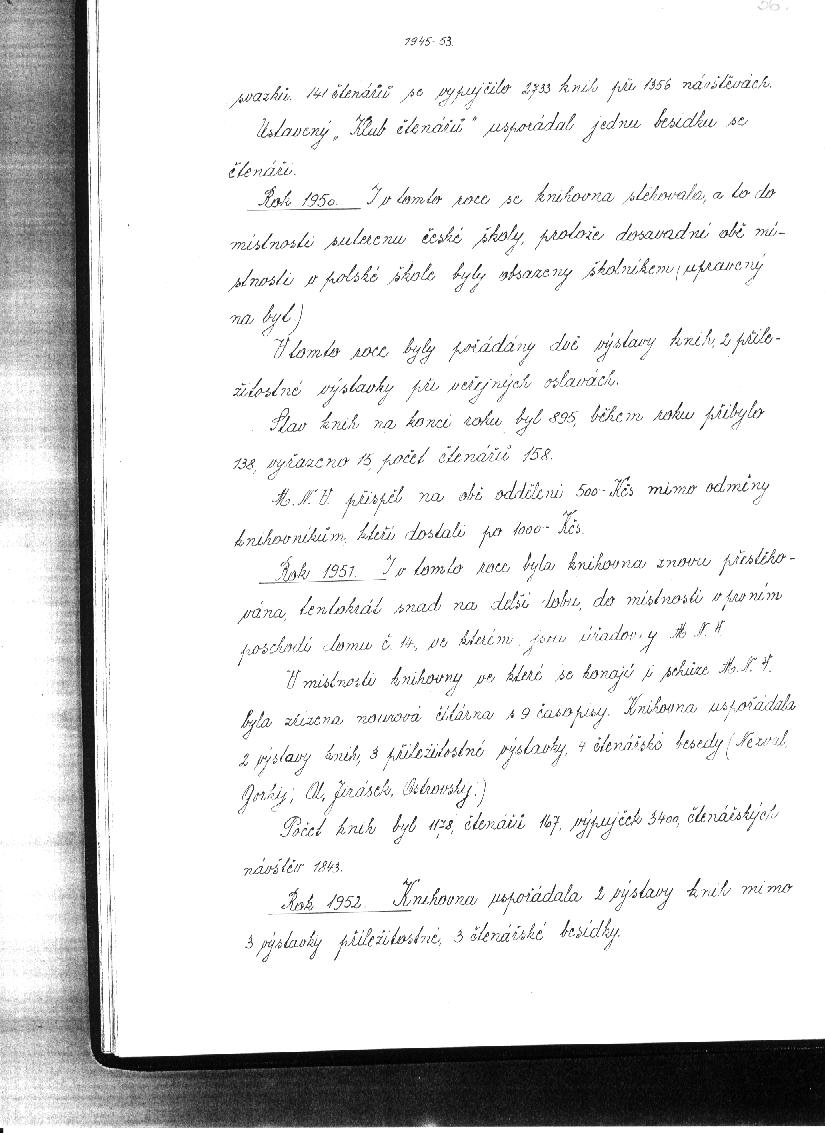 56.
1945-53.
svazků. 141 čtenářů se vypujčilo 2733 knih při 1356 návštěvách.
Ustavený „Klub čtenářů“ uspořádal jednu besídku se
čtenáři.
Rok 1950. I v tomto roce se knihovna stěhovala, a to do
místnosti suterenu české školy, protože dosavadní obě mí-
stnosti v polské škole byly obsazeny školníkem (upraveny
na byt)
V tomto roce byly pořádány dvě výstavy knih, 2 příle-
žitostné výstavky při veřejných oslavách.
Stav knih na konci roku byl 895, během roku přibylo
138, vyřazeno 15, počet čtenářů 158.
M.N.V. přispěl na obě oddělení 500- Kčs mimo odměny
knihovníkům, kteří dostali po 1000- Kčs.
Rok 1951. I v tomto roce byla knihovna znovu přestěho-
vána, tentokrát snad na delší dobu, do místnosti v prvním
poschodí domu č. 14, ve kterém jsou úřadovny M.N.V.
V místnosti knihovny ve které se konají i schůze M.N.V.
byla zřízena nouzová čítárna s 9 časopisy. Knihovna uspořádala
2 výstavy knih, 3 příležitostné výstavky, 4 čtenářské besedy (Nezval,
Gorkij, Al. Jirásek, Ostrovský.)
Počet knih byl 1178, čtenářů 167, výpujček 3400, čtenářských
návštěv 1843.
Rok 1952. Knihovna uspořádala 2 výstavy knih mimo
3 výstavky příležitostné, 3 čtenářské besídky.